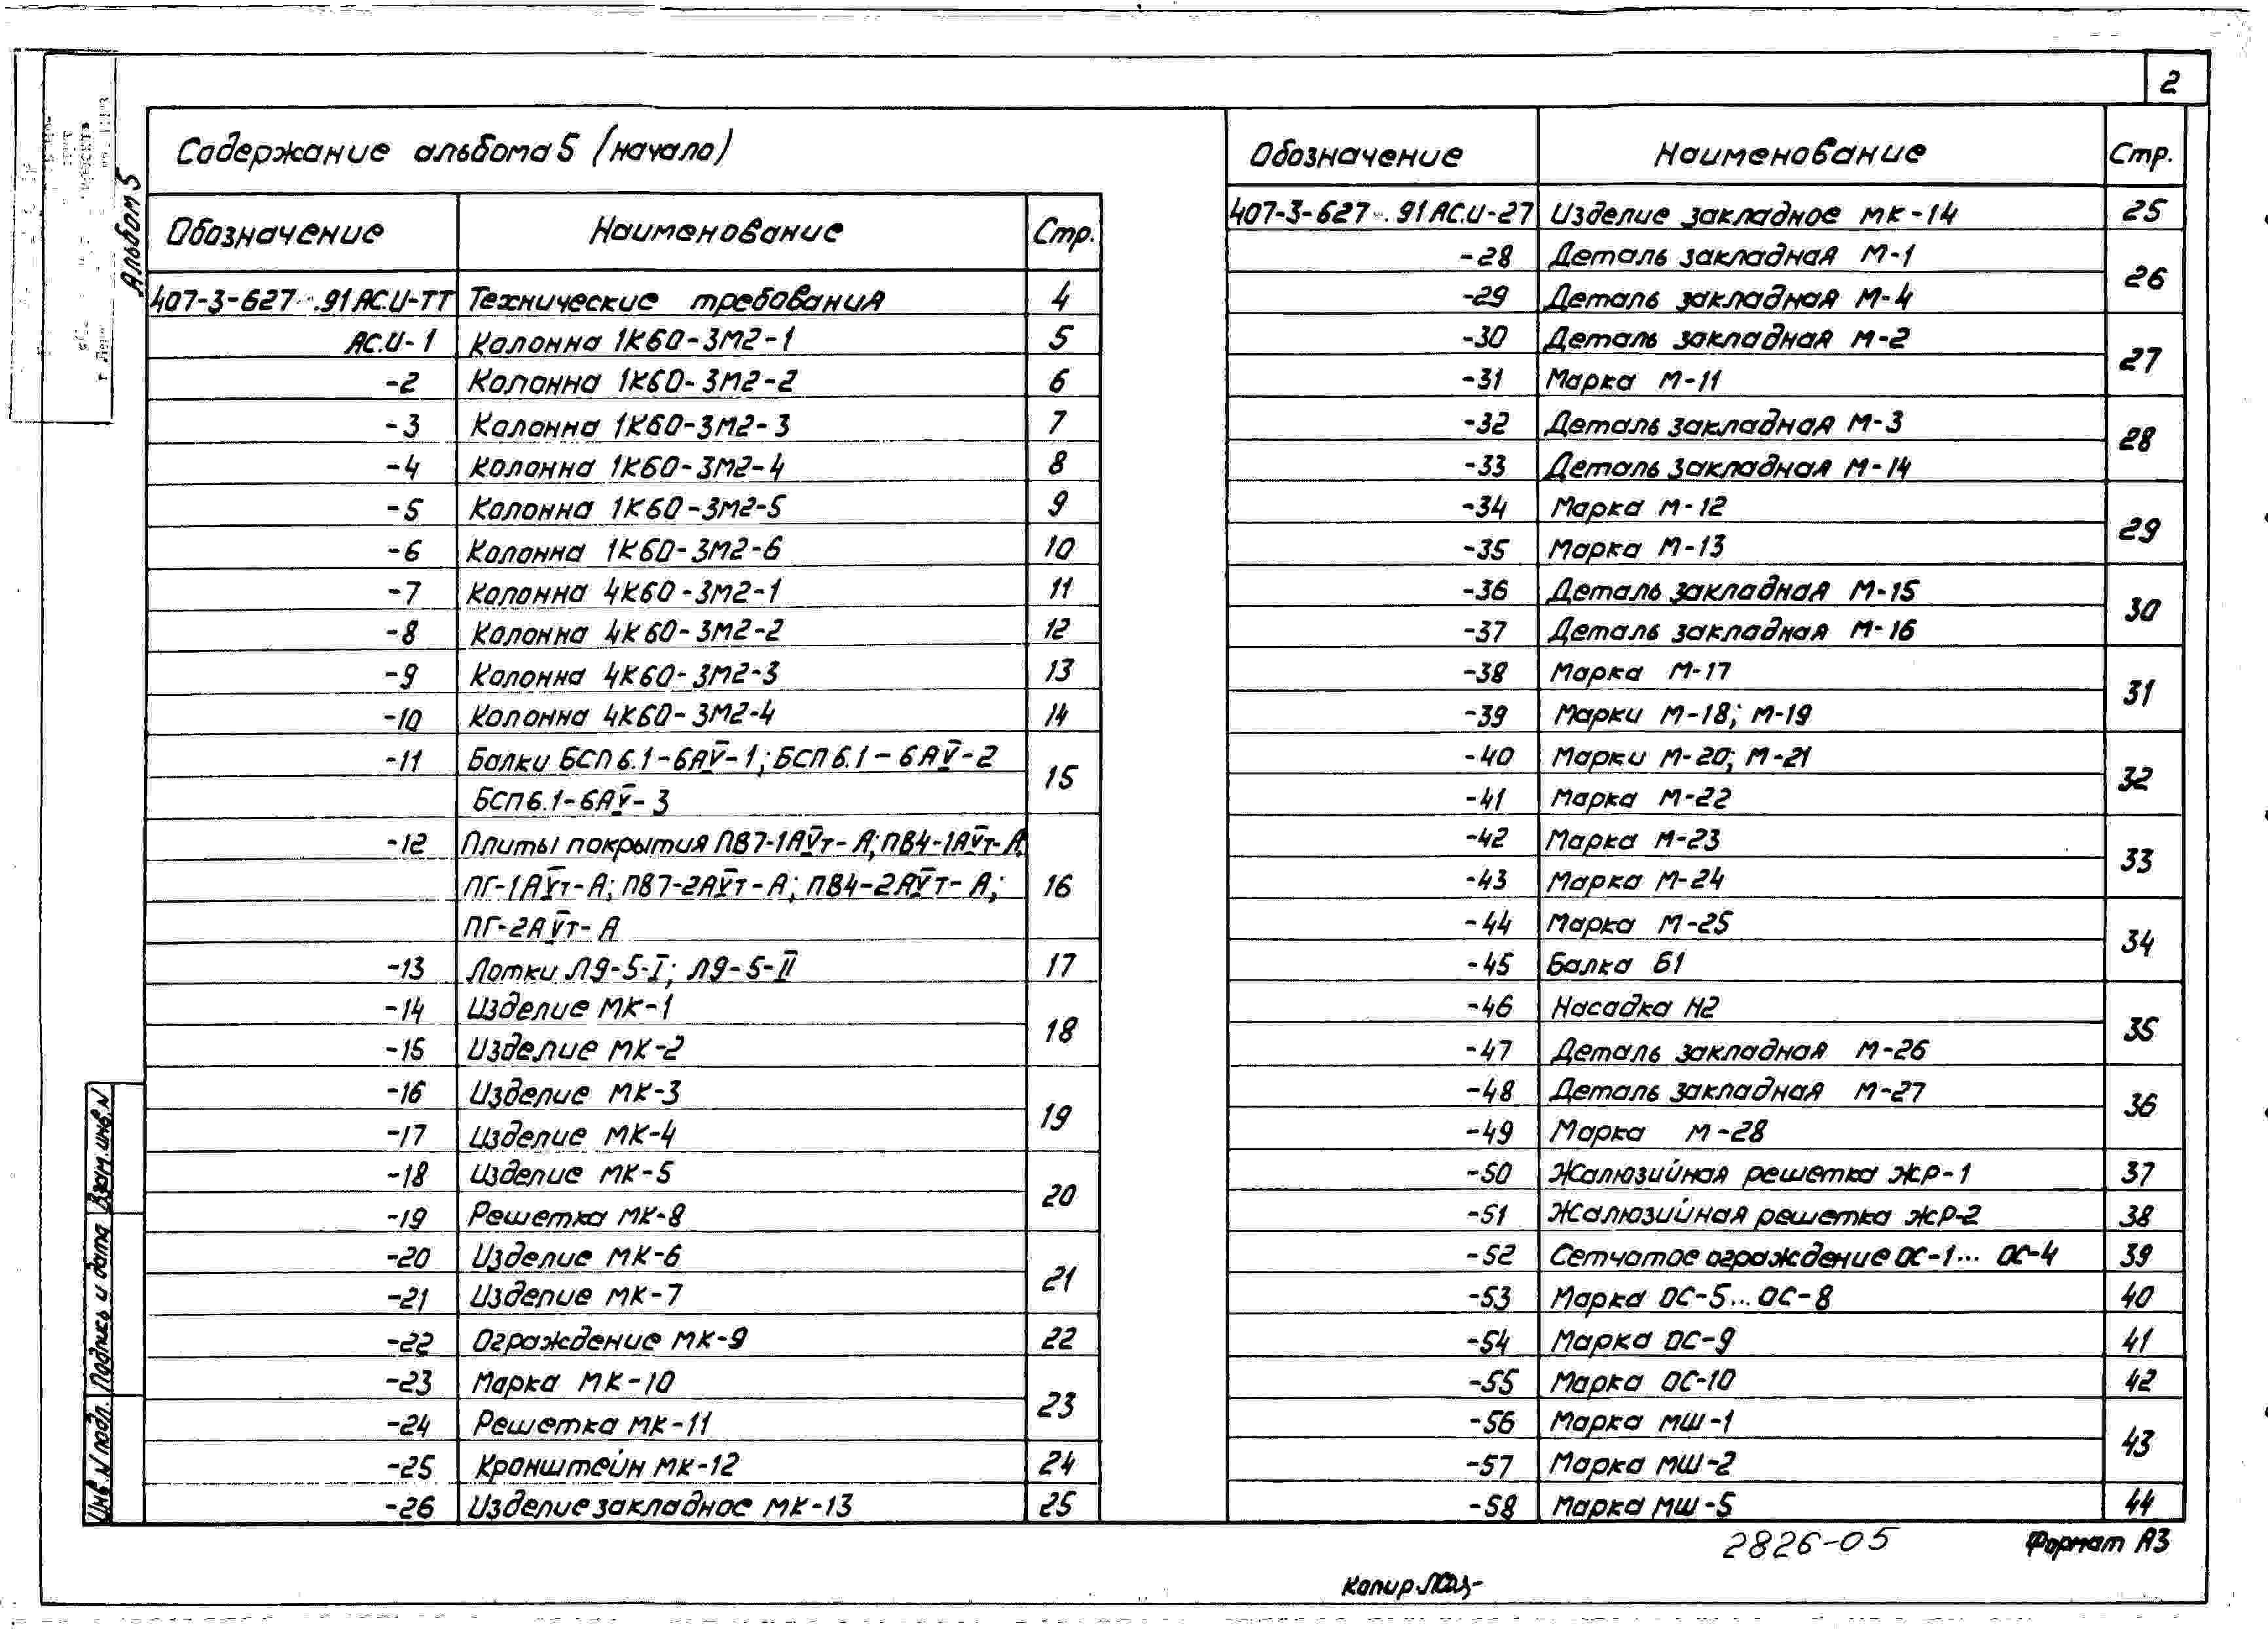 2
Альбом 5
Содержание альбома 5 (начало)
Обозначение Наименование Стр.
407-3-627 .91 АС.И-ТТ Технические требования 4
АС.И-1 Колонна 1К60-3М2-1 5
-2 Колонна 1К60-3М2-2 6
-3 Колонна 1К60-3М2-3 7
-4 Колонна 1К60-3М2-4 8
-5 Колонна 1К60-3М2-5 9
-6 Колонна 1К60-3М2-6 10
-7 Колонна 4К60-3М2-1 11
-8 Колонна 4К60-3М2-2 12
-9 Колонна 4К60-3М2-3 13
-10 Колонна 4К60-3М2-4 14
-11 Балки БСП 6.1-6АV-1; БСП 6.1-6АV-2 15
БСП 6.1-6АV-3
-12 Плиты покрытия ПВ7-1АVт-А; ПВ4-1АVт-А; 16
ПГ-1АVт-А; ПВ7-2АVт-А; ПВ4-2АVт-А;
ПГ-2АVт-А
-13 Лотки Л9-5-I; Л9-5-II 17
-14 Изделие МК-1 18
-15 Изделие МК-2
-16 Изделие МК-3 19
-17 Изделие МК-4
-18 Изделие МК-5 20
-19 Решетка МК-8
-20 Изделие МК-6 21
-21 Изделие МК-7
-22 Ограждение МК-9 22
-23 Марка МК-10 23
-24 Решетка МК-11
-25 Кронштейн МК-12 24
-26 Изделие закладное МК-13 25
Обозначение Наименование Стр.
407-3-627 .91 АС.И-27 Изделие закладное МК-14 25
-28 Деталь закладная М-1 26
-29 Деталь закладная М-4
-30 Деталь закладная М-2 27
-31 Марка М-11
-32 Деталь закладная М-3 28
-33 Деталь закладная М-14
-34 Марка М-12 29
-35 Марка М-13
-36 Деталь закладная М-15 30
-37 Деталь закладная М-16
-38 Марка М-17 31
-39 Марки М-18; М-19
-40 Марки М-20; М-21 32
-41 Марка М-22
-42 Марка М-23 33
-43 Марка М-24
-44 Марка М-25 34
-45 Балка Б1
-46 Насадка Н2 35
-47 Деталь закладная М-26
-48 Деталь закладная М-27 36
-49 Марка М-28
-50 Жалюзийная решетка ЖР-1 37
-51 Жалюзийная решетка ЖР-2 38
-52 Сетчатое ограждение ОС-1... ОС-4 39
-53 Марка ОС-5...ОС-8 40
-54 Марка ОС-9 41
-55 Марка ОС-10 42
-56 Марка МШ-1 43
-57 Марка МШ-2
-58 Марка МШ-5 44
Взам. инв. N
Подпись и дата
Инв. N подл.
2826-05
Формат А3
Копир.